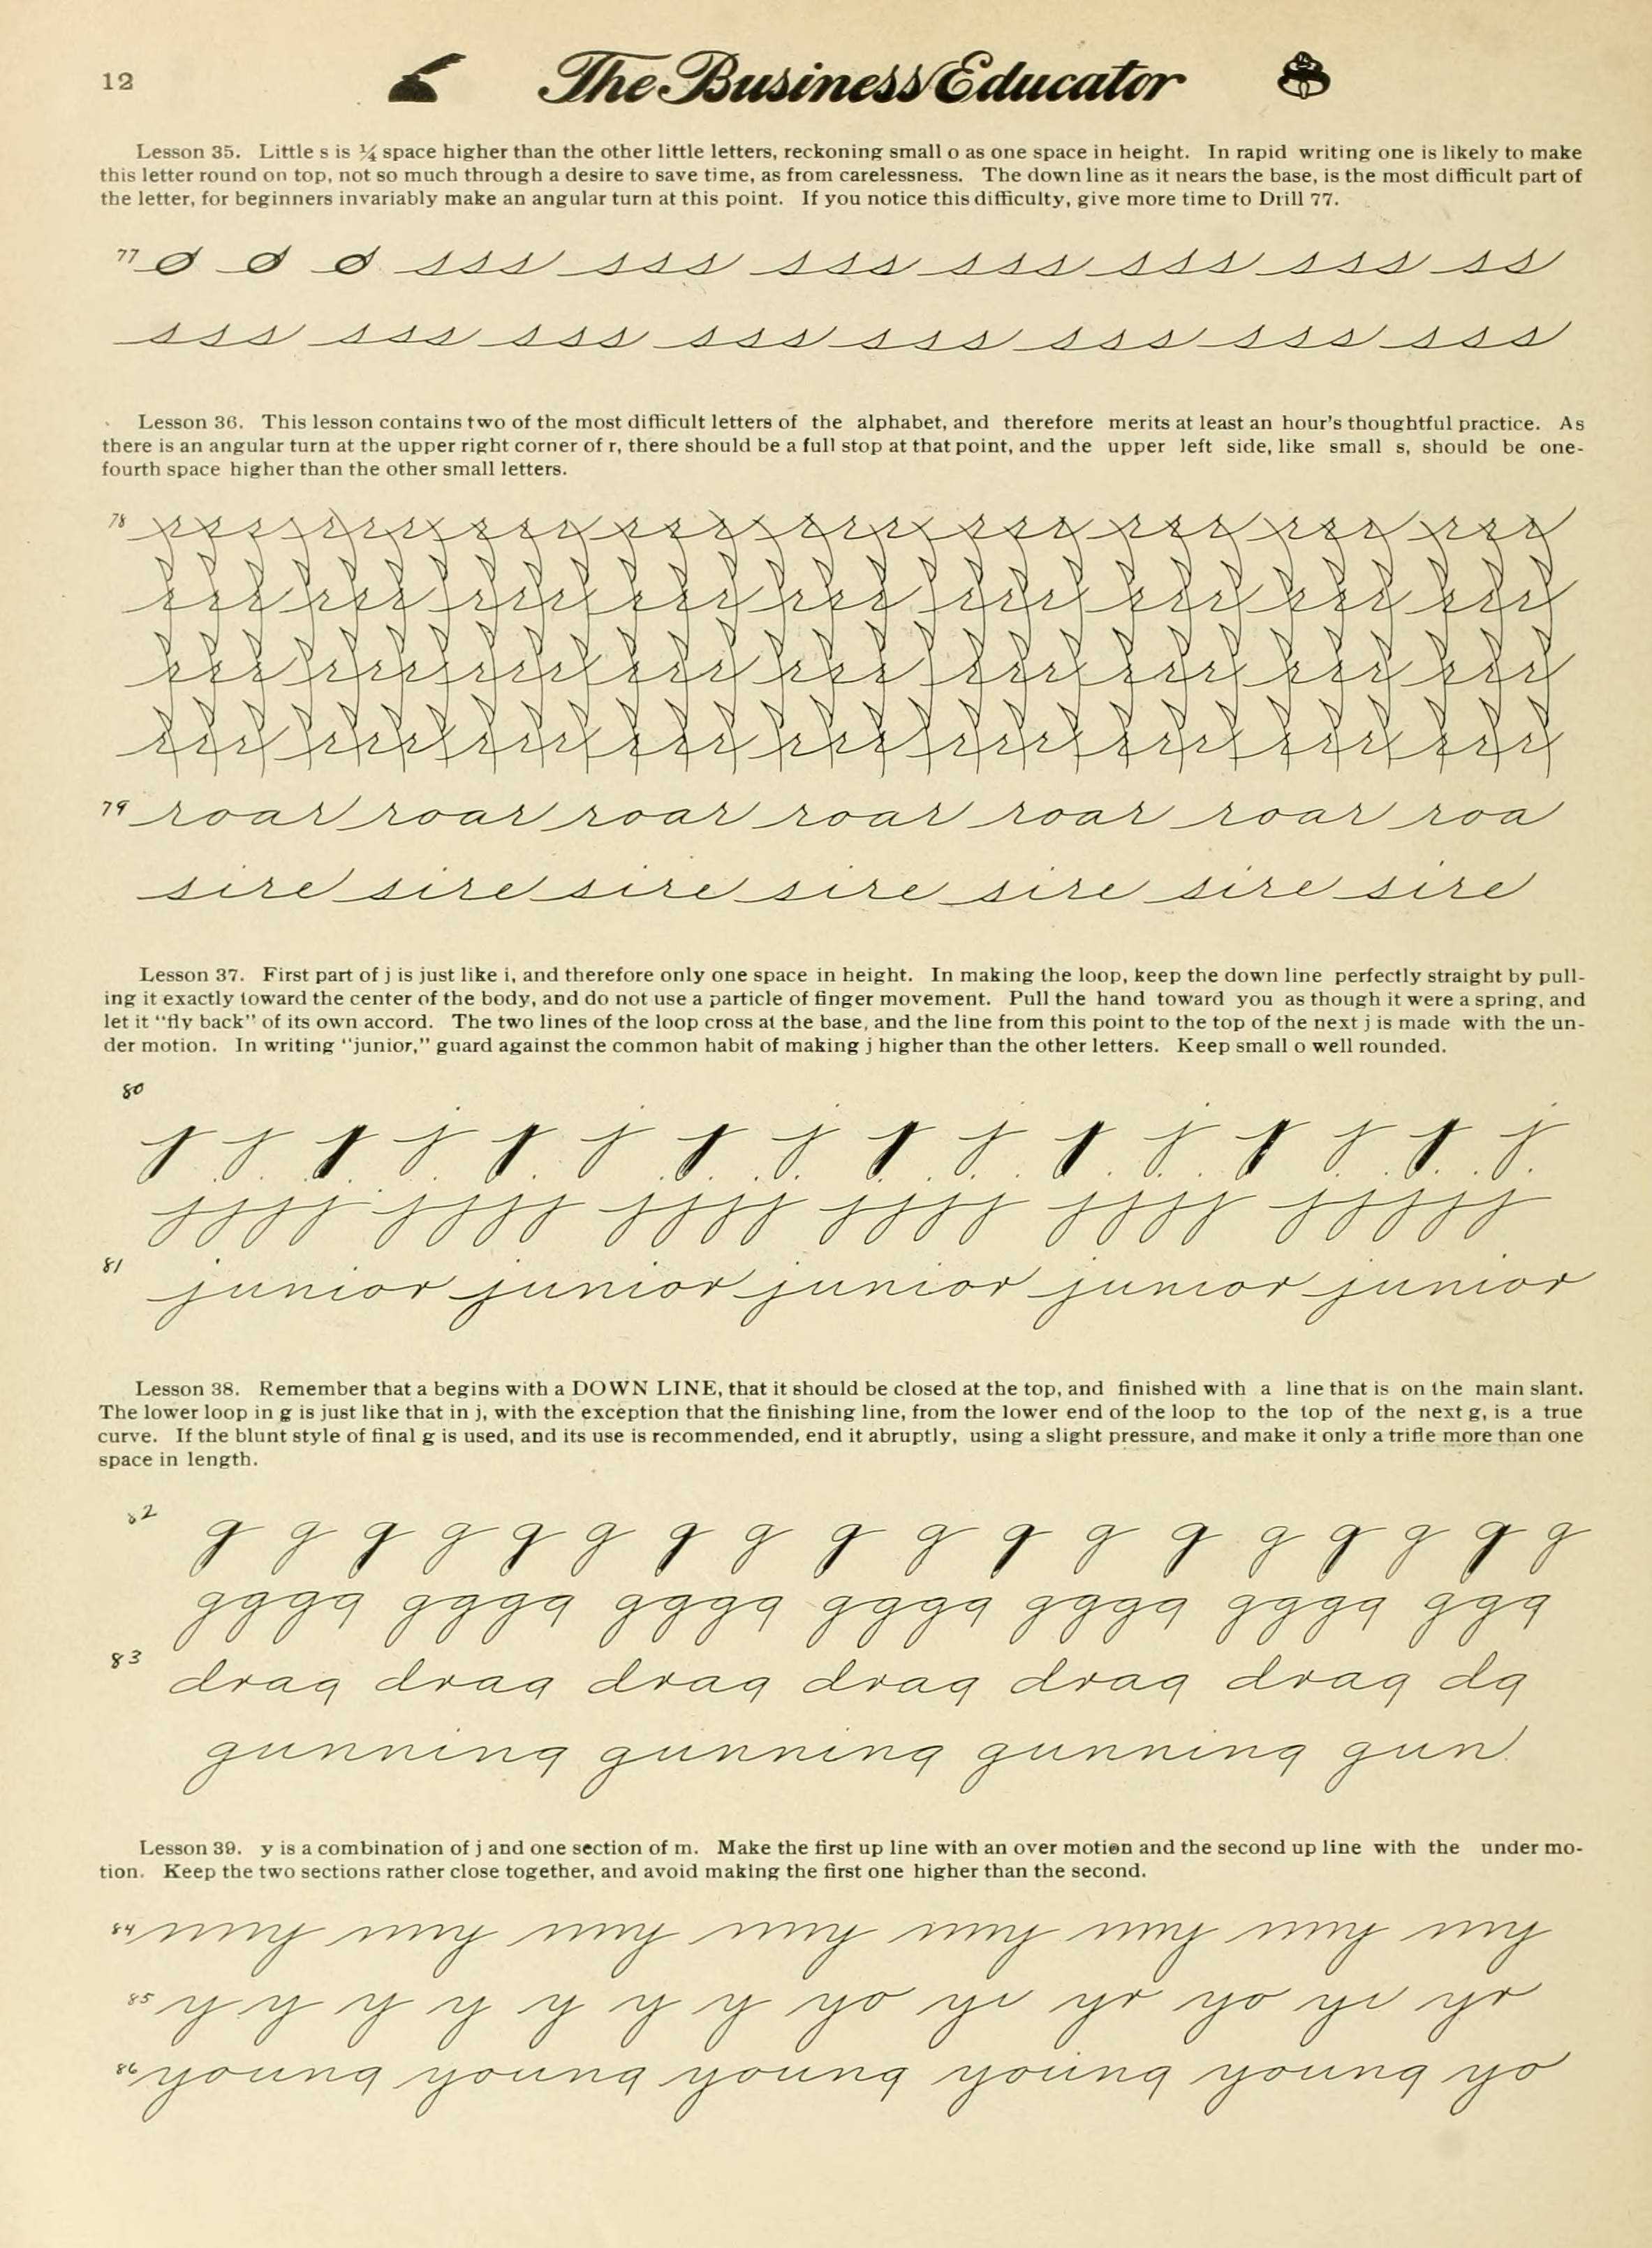 12
The Business Educator
Lesson 35. Little s is ¼ space higher than the other little letters, reckoning small o as one space in height. In rapid writing one is likely to make
this letter round on top, not so much through a desire to save time, as from carelessness. The down line as it nears the base, is the most difficult part of
the letter, for beginners invariably make an angular turn at this point. If you notice this difficulty, give more time to Drill 77.
77 sss sss sss sss sss sss ss
sss sss sss sss sss sss sss sss
Lesson 36. This lesson contains two of the most difficult letters of the alphabet, and therefore merits at least an hour's thoughtful practice. As
there is an angular turn at the upper right corner of r, there should be a full stop at that point, and the upper left side, like small s, should be one-
fourth space higher than the other small letters.
78
79 roar roar roar roar roar roar roa
sire sire sire sire sire sire sire
Lesson 37. First part of j is just like i, and therefore only one space in height. In making the loop, keep the down line perfectly straight by pull-
ing it exactly toward the center of the body, and do not use a particle of finger movement. Pull the hand toward you as though it were a spring, and
let it "fly back" of its own accord. The two lines of the loop cross at the base, and the line from this point to the top of the next j is made with the un-
der motion. In writing "junior," guard against the common habit of making j higher than the other letters. Keep small o well rounded.
80
j j j j j j j j j j j j j j j j
jjjj jjjj jjjj jjjj jjjj jjjjj
81 junior junior junior junior junior
Lesson 38. Remember that a begins with a DOWN LINE, that it should be closed at the top, and finished with a line that is on the main slant.
The lower loop in g is just like that in j, with the exception that the finishing line, from the lower end of the loop to the top of the next g, is a true
curve. If the blunt style of final g is used, and its use is recommended, end it abruptly, using a slight pressure, and make it only a trifle more than one
space in length.
82 g g g g g g g g g g g g g g g g g g
gggg gggg gggg gggg gggg gggg ggg
83 drag drag drag drag drag drag dg
gunning gunning gunning gun
Lesson 39. y is a combination of j and one section of m. Make the first up line with an over motion and the second up line with the under mo-
tion. Keep the two sections rather close together, and avoid making the first one higher than the second.
84
85 y y y y y y y yo yi yr yo yi yr
86 young young young young young yo